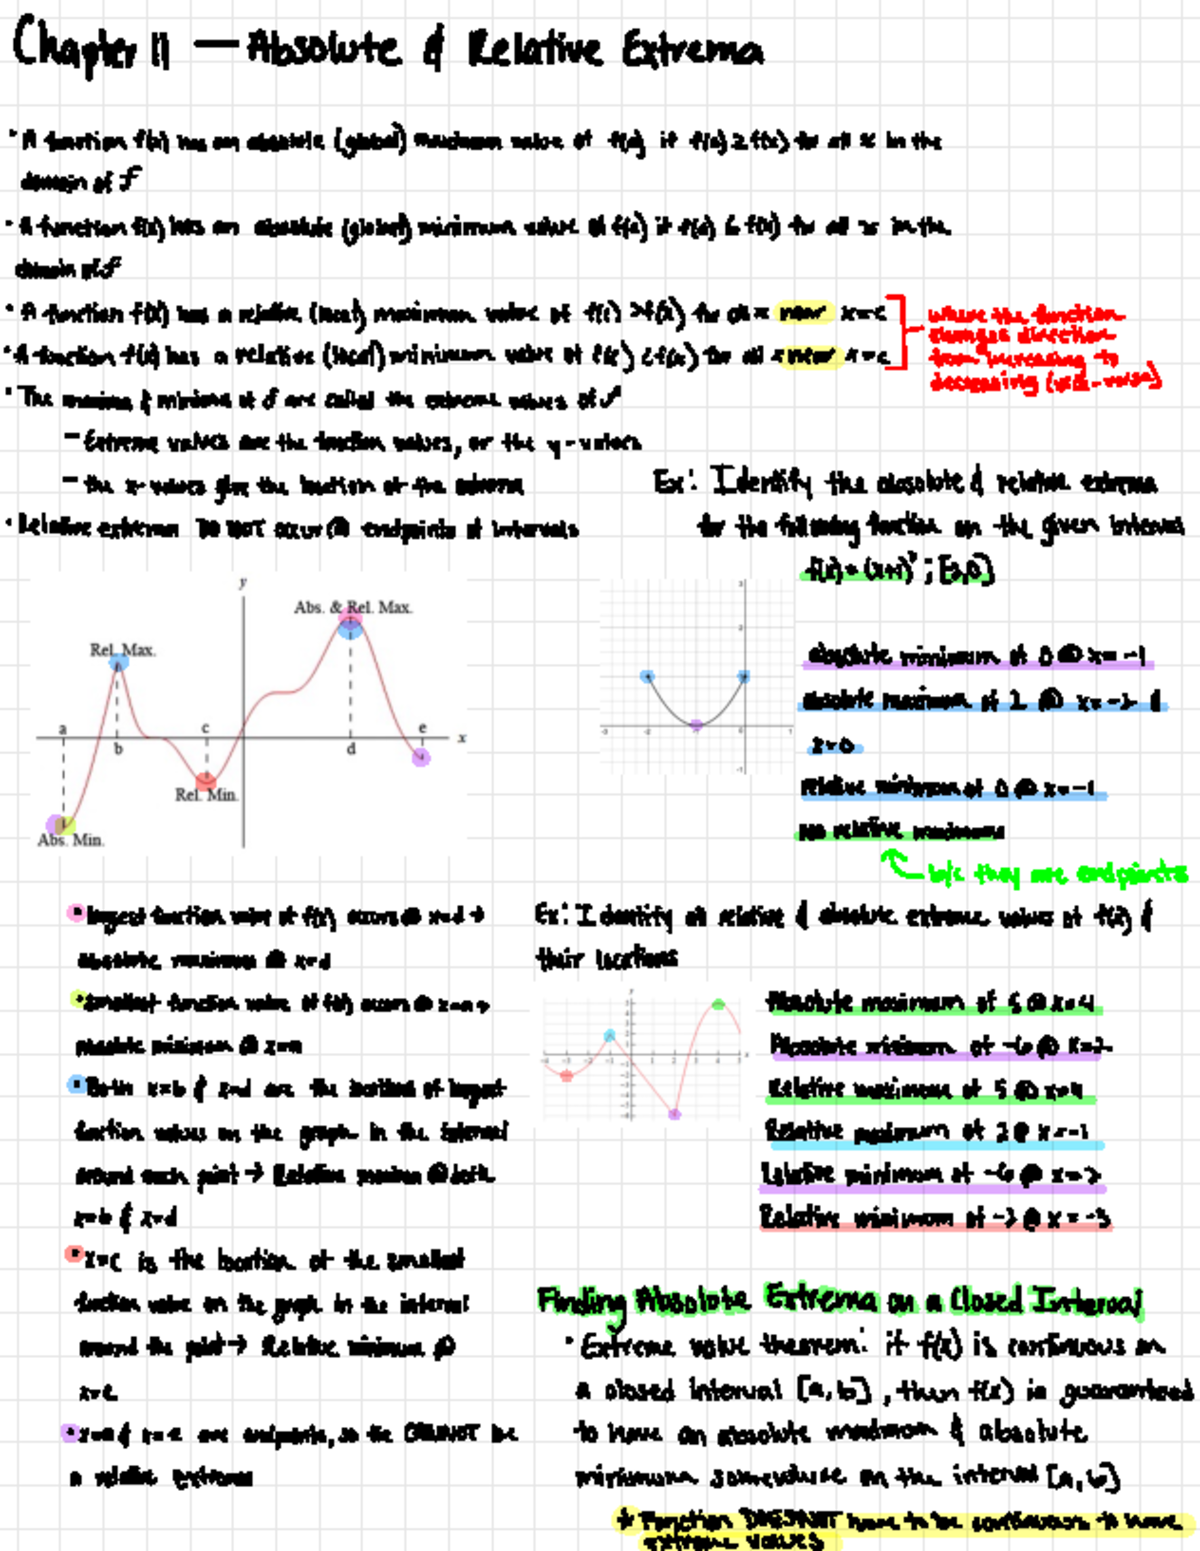 Chapter 11 — Absolute & Relative Extrema
· A function f(x) has an absolute (global) maximum value of f(c) if f(c) ≥ f(x) for all x in the
domain of f
· A function f(x) has an absolute (global) minimum value of f(c) if f(c) ≤ f(x) for all x in the
domain of f
· A function f(x) has a relative (local) maximum value of f(c) > f(x) for all x near x=c
· A function f(x) has a relative (local) minimum value of f(c) < f(x) for all x near x=c
where the function
changes direction
from increasing to
decreasing (vice-versa)
· The maxima & minima of f are called the extreme values of f
- Extreme values are the function values, or the y-values
- the x-values give the location of the extrema
· Relative extrema DO NOT occur @ endpoints of intervals
Ex: Identify the absolute & relative extrema
for the following function on the given interval
f(x) = (x+1)² ;
absolute minimum of 0 @ x=-1
absolute maximum of 2 @ x=-2 &
x=0
relative minimum of 0 @ x=-1
No relative maximums
b/c they are endpoints
y
Abs. & Rel. Max.
Rel. Max.
a b c d e x
Rel. Min.
Abs. Min.
· largest function value of f(x) occurs @ x=d →
absolute maximum @ x=d
· Smallest function value of f(x) occurs @ x=a →
absolute minimum @ x=a
· Both x=b & x=d are the location of largest
function values on the graph in the interval
around each point → Relative maxima @ both
x=b & x=d
· x=c is the location of the smallest
function value on the graph in the interval
around the point → Relative minimum @
x=c
· x=a & x=e are endpoints, so the CANNOT be
a relative extrema
Ex: Identify all relative & absolute extreme values of f(x) &
their locations
Absolute maximum of 5 @ x=4
Absolute minimum of -6 @ x=2
Relative maximum of 5 @ x=4
Relative maximum of 2 @ x=-1
Relative minimum of -6 @ x=2
Relative minimum of -2 @ x=-3
Finding Absolute Extrema on a Closed Interval
· Extreme value theorem: if f(x) is continuous on
a closed interval [a,b], then f(x) is guaranteed
to have an absolute maximum & absolute
minimum somewhere on the interval [a,b]
* Function DOES NOT have to be continuous to have
extreme values